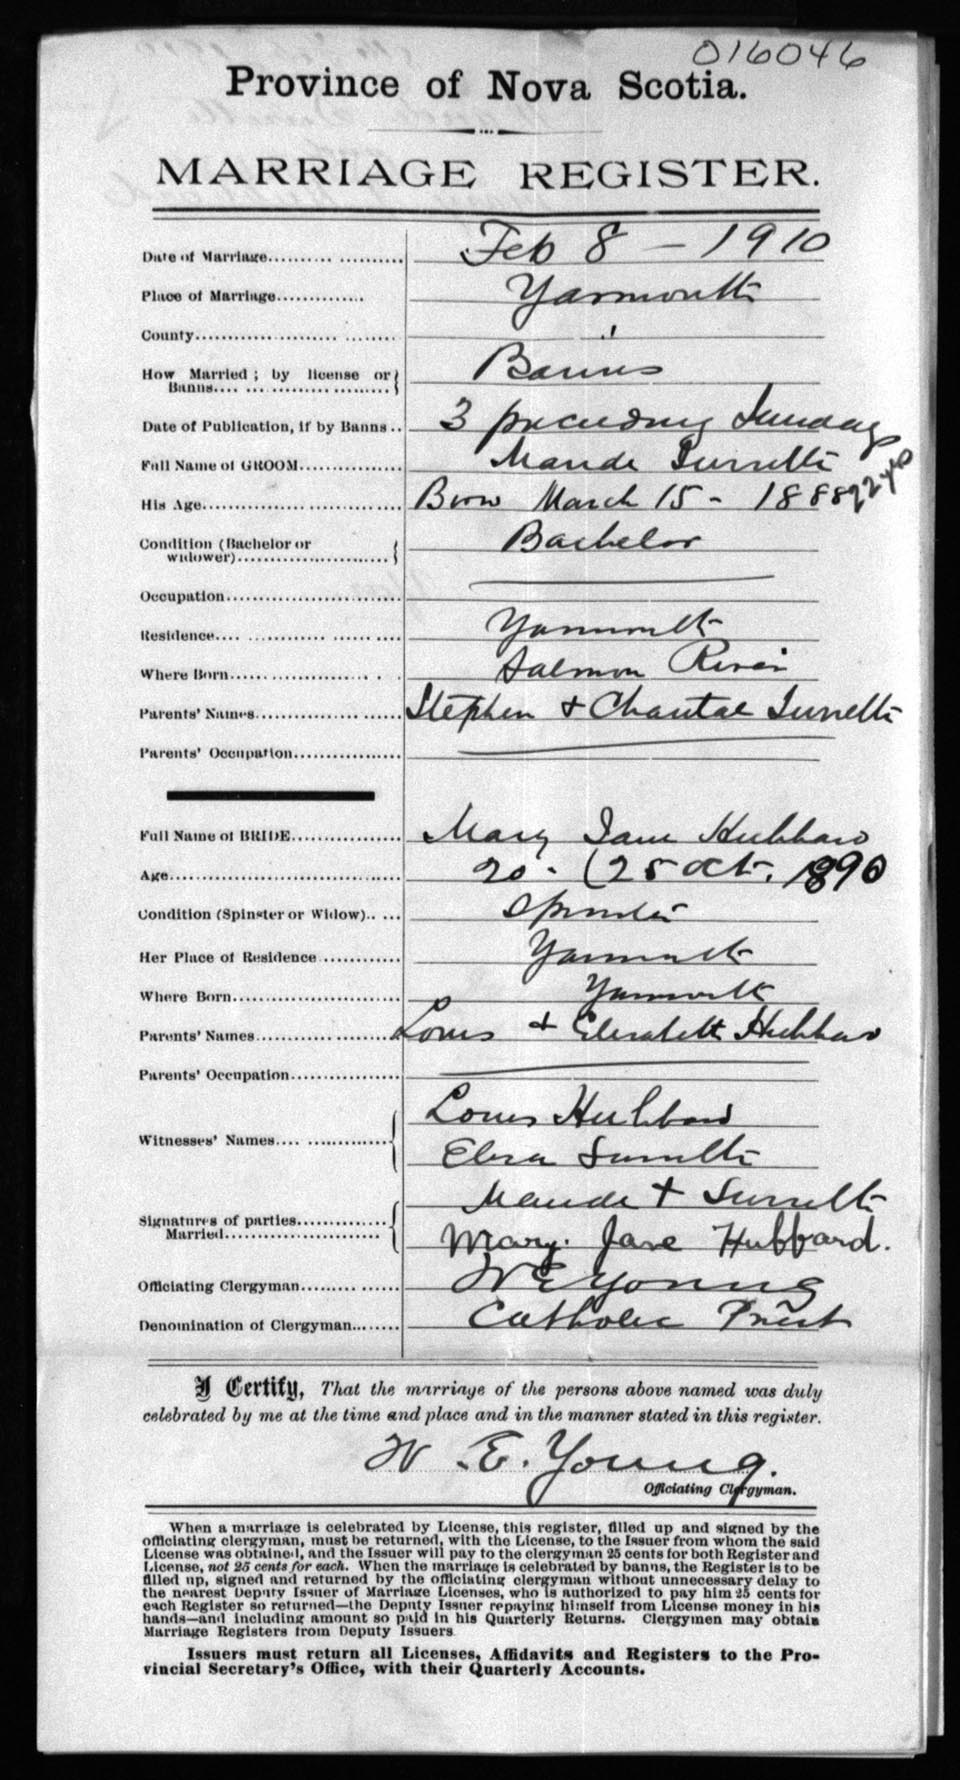 016046
Province of Nova Scotia.
MARRIAGE REGISTER.
Date of Marriage.......... .......... Feb 8 — 1910
Place of Marriage.............. Yarmouth
County...................... ........
How Married; by license or Banns.... ... .................... Banns
Date of Publication, if by Banns .. 3 preceding Sundays
Full Name of GROOM............... Mande Surrette
His Age................................ Born March 15 - 1888 22 yrs
Condition (Bachelor or widower)....................... Bachelor
Occupation...........................
Residence.... .......... ...... .... Yarmouth
Where Born..................... . . Salmon River
Parents' Names...................... Stephen & Chantal Surrette
Parents' Occupation................
Full Name of BRIDE................ Mary Jane Hubbard
Age..................................... 20 - (25 Oct. 1890
Condition (Spinster or Widow).. ... Spinster
Her Place of Residence............ Yarmouth
Where Born.......................... Yarmouth
Parents' Names...................... Louis & Elizabeth Hubbard
Parents' Occupation................
Witnesses' Names.... ............. Louis Hubbard
Surrette
Signatures of parties.............. Married......................... Mande + Surrette
Mary. Jane Hubbard.
Officiating Clergyman......... ..... W E Young
Denomination of Clergyman....... Catholic Priest
I Certify, That the marriage of the persons above named was duly
celebrated by me at the time and place and in the manner stated in this register.
W. E. Young.
Officiating Clergyman.
When a marriage is celebrated by License, this register, filled up and signed by the
officiating clergyman, must be returned, with the License, to the Issuer from whom the said
License was obtained, and the Issuer will pay to the clergyman 25 cents for both Register and
License, not 25 cents for each. When the marriage is celebrated by banns, the Register is to be
filled up, signed and returned by the officiating clergyman without unnecessary delay to
the nearest Deputy Issuer of Marriage Licenses, who is authorized to pay him 25 cents for
each Register so returned—the Deputy Issuer repaying himself from License money in his
hands—and including amount so paid in his Quarterly Returns. Clergymen may obtain
Marriage Registers from Deputy Issuers
Issuers must return all Licenses, Affidavits and Registers to the Pro-
vincial Secretary's Office, with their Quarterly Accounts.